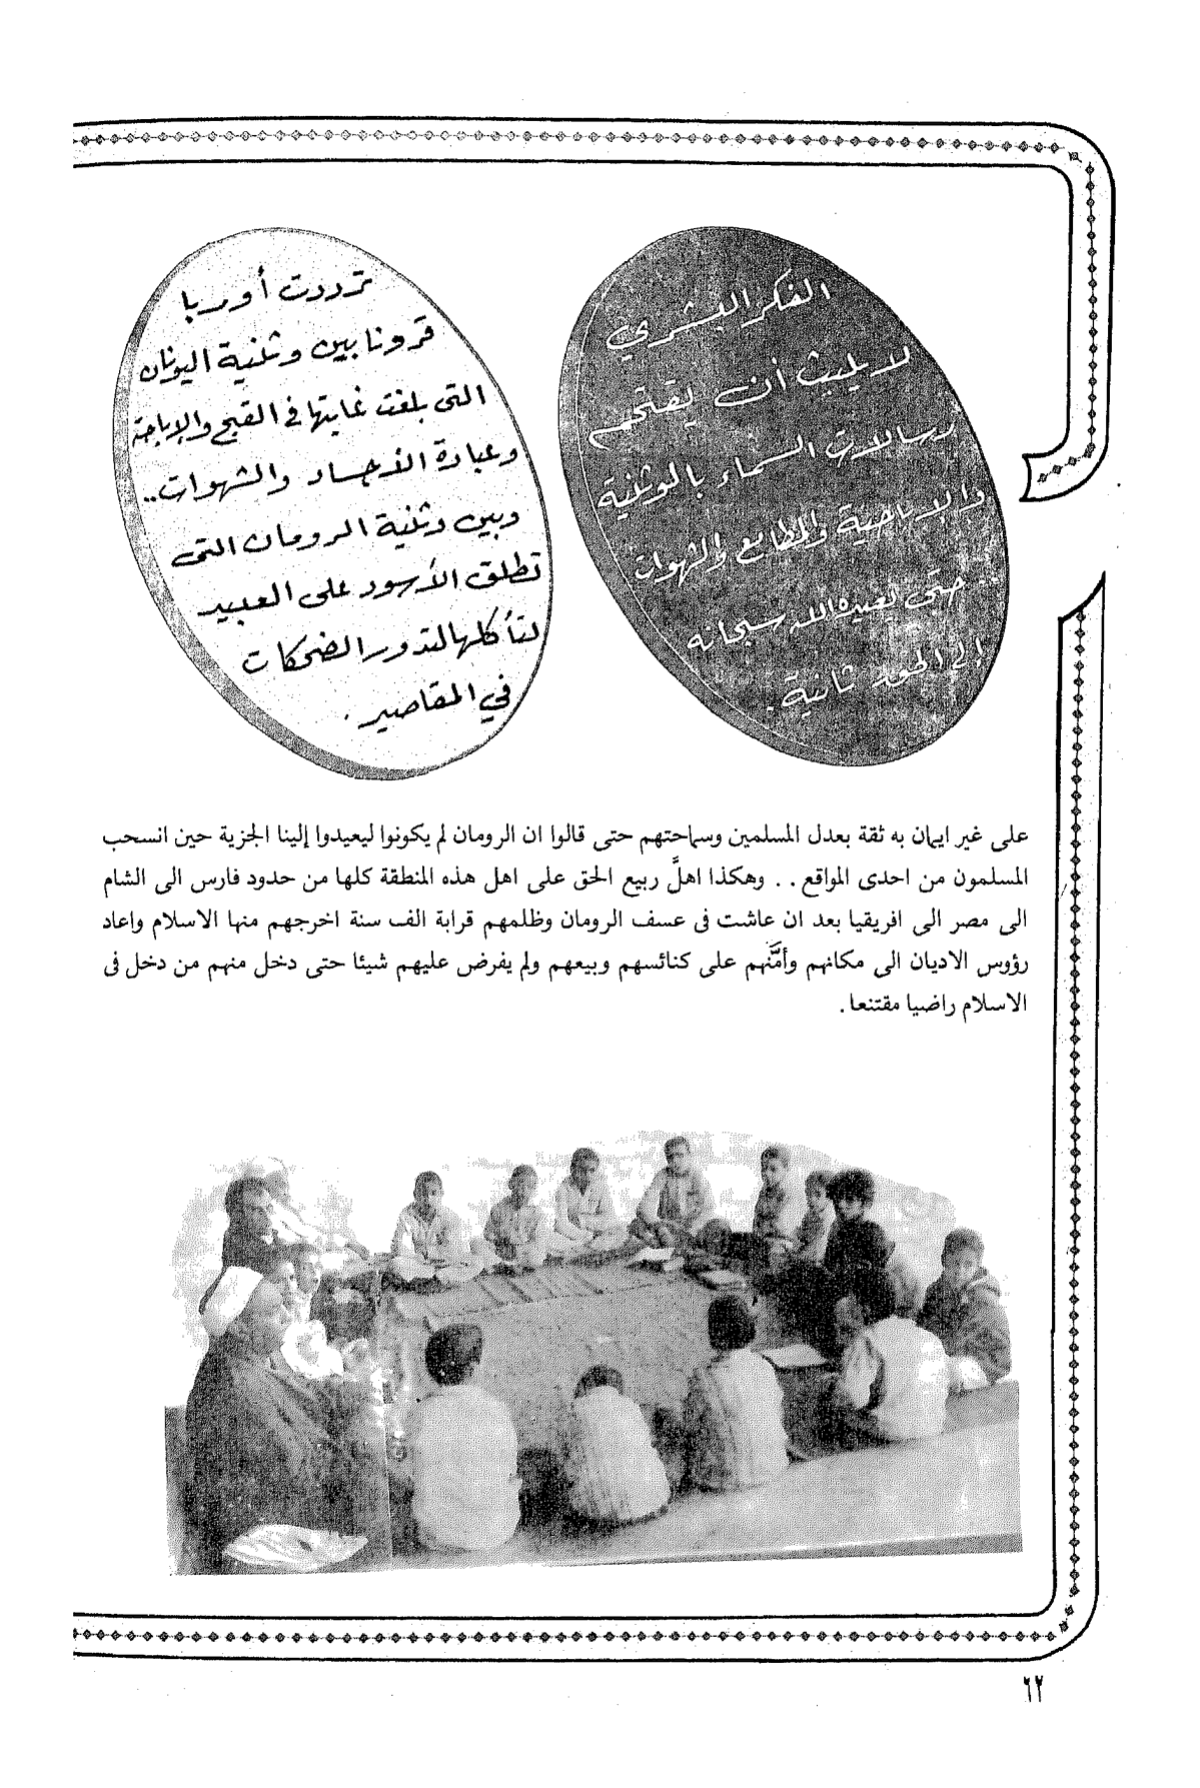 الفكر البشري
لا يلبث أن يقتحم
رسالات السماء بالوثنية
والإباحية والمطامع والشهوات
.. حتى يعيده الله سبحانه
إلى الحق ثانية.
ترددت أوربا
قرونا بين وثنية اليونان
التى بلغت غايتها في القبح والإباحة
وعبادة الأجساد والشهوات..
وبين وثنية الرومان التى
تطلق الأسود على العبيد
لتأكلها لتدور الضحكات
في المقاصير.
على غير ايمان به ثقة بعدل المسلمين وسماحتهم حتى قالوا ان الرومان لم يكونوا ليعيدوا إلينا الجزية حين انسحب
المسلمون من احدى المواقع . . وهكذا اهلَّ ربيع الحق على اهل هذه المنطقة كلها من حدود فارس الى الشام
الى مصر الى افريقيا بعد ان عاشت فى عسف الرومان وظلمهم قرابة الف سنة اخرجهم منها الاسلام واعاد
رؤوس الاديان الى مكانهم وأمَّنهم على كنائسهم وبيعهم ولم يفرض عليهم شيئا حتى دخل منهم من دخل فى
الاسلام راضيا مقتنعا .
٦٢